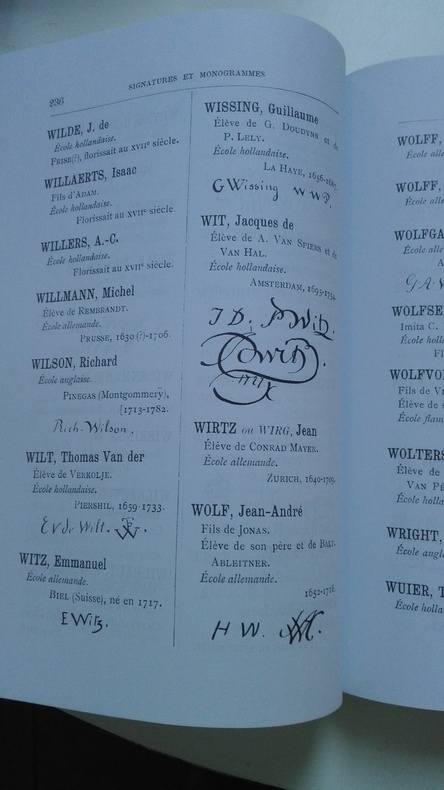 236
SIGNATURES ET MONOGRAMMES
WILDE, J. de
École hollandaise.
FRISE(?), florissait au XVIIe siècle.
WILLAERTS, Isaac
Fils d'ADAM.
École hollandaise.
Florissait au XVIIe siècle
WILLERS, A.-C.
École hollandaise.
Florissait au XVIIe siècle.
WILLMANN, Michel
Élève de REMBRANDT.
École allemande.
PRUSSE, 1630 (?)-1706.
WILSON, Richard
École anglaise.
PINEGAS (Montgommery),
[1713-1782.
Rich-Wilson.
WILT, Thomas Van der
Élève de VERKOLJE.
École hollandaise.
PIERSHIL, 1659-1733.
WITZ, Emmanuel
École allemande.
BIEL (Suisse), né en 1717.
E Witz.
WISSING, Guillaume
Élève de G. DOUDYNS et de
P. LELY.
École hollandaise.
LA HAYE, 1656-1687.
G Wissing
WIT, Jacques de
Élève de A. VAN SPIERS et de
VAN HAL.
École hollandaise.
AMSTERDAM, 1695-1754.
WIRTZ ou WIRG, Jean
Élève de CONRAD MAYER.
École allemande.
ZURICH, 1640-1709.
WOLF, Jean-André
Fils de JONAS.
Élève de son père et de BALT.
ABLEITNER.
École allemande.
1652-1716.
H W.
WOLFF,
École alle
WOLFF,
École alle
WOLFGA
École alle
WOLFSE
Imita C.
École holl
WOLFVO
Fils de V
Élève de
École flam
WOLTERS
Élève de
VAN P
École holla
WRIGHT,
École angl
WUIER, T
École holla